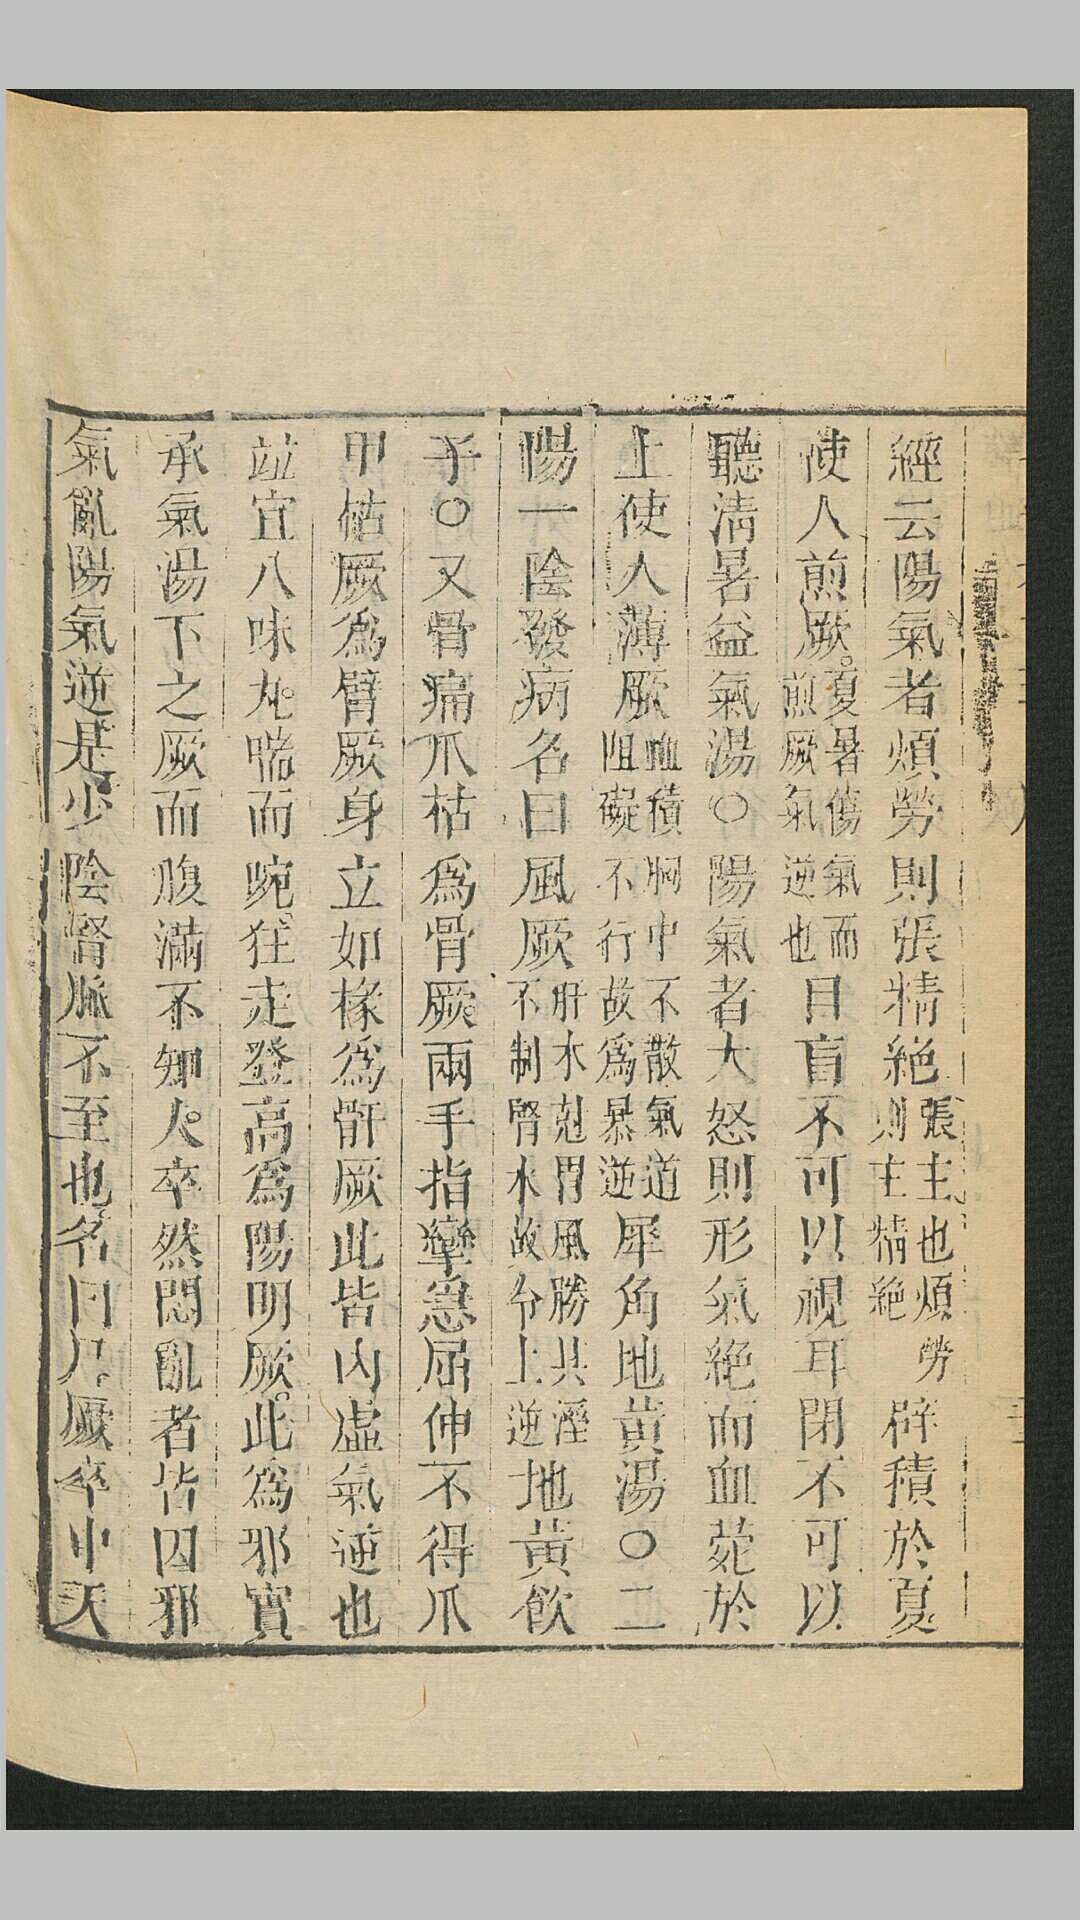 經云陽氣者煩勞則張精絕張主也煩勞則主精絕辟積於夏
使人煎厥夏暑傷氣而煎厥氣逆也目盲不可以視耳閉不可以
聽淸暑益氣湯〇陽氣者大怒則形氣絕而血菀於
上使人薄厥血積胸中不散氣道阻礙不行故爲暴逆犀角地黃湯〇二
陽一陰發病名曰風厥肝木剋胃風勝共溼不制腎水故令上逆地黃飮
子〇又骨痛爪枯爲骨厥兩手指攣急屈伸不得爪
甲枯厥爲臂厥身立如椽爲骭厥此皆內虛氣逆也
竝宜八味丸喘而啘狂走登高爲陽明厥此爲邪實
承氣湯下之厥而腹滿不知人卒然悶亂者皆因邪
氣亂陽氣逆是少陰腎脈不至也名曰尸厥卒中天